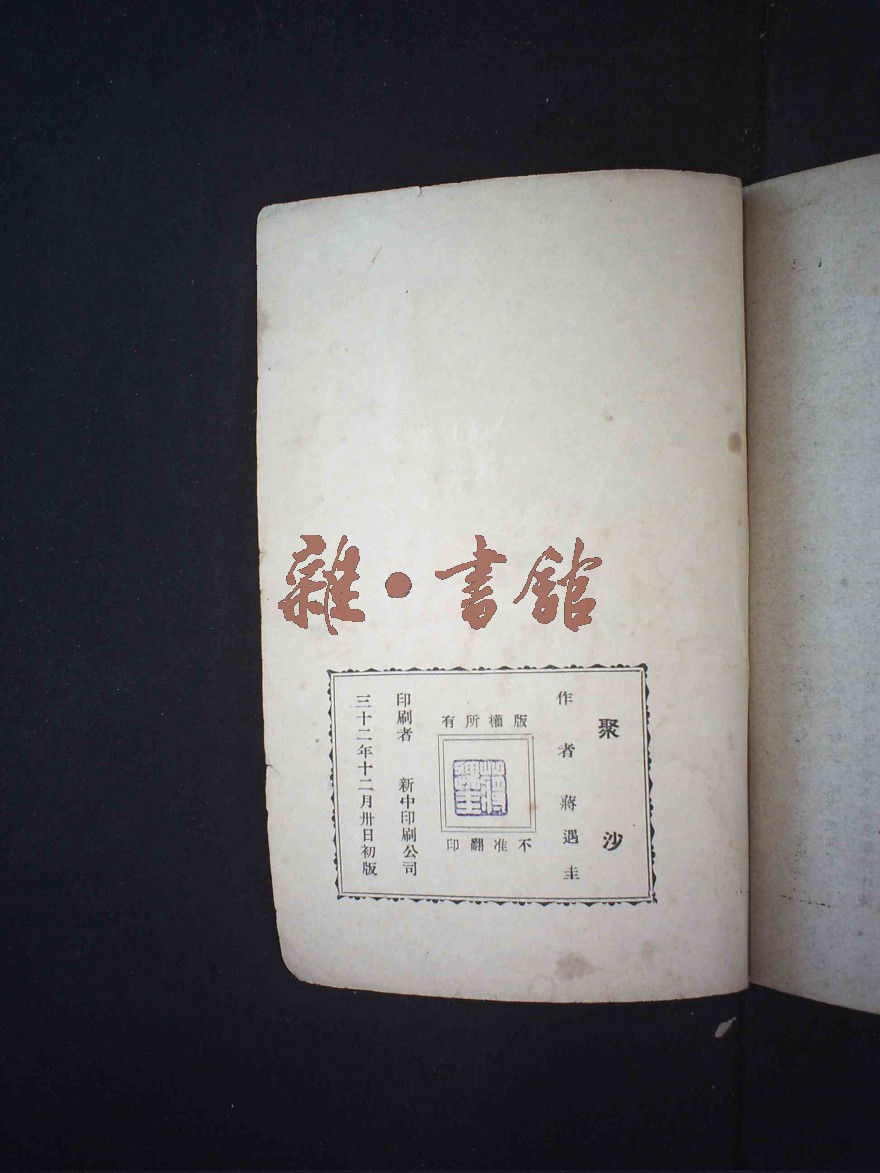 雜·書館
聚沙
作者 蔣遇圭
版權所有
不准翻印
印刷者 新中印刷公司
三十二年十二月卅日初版